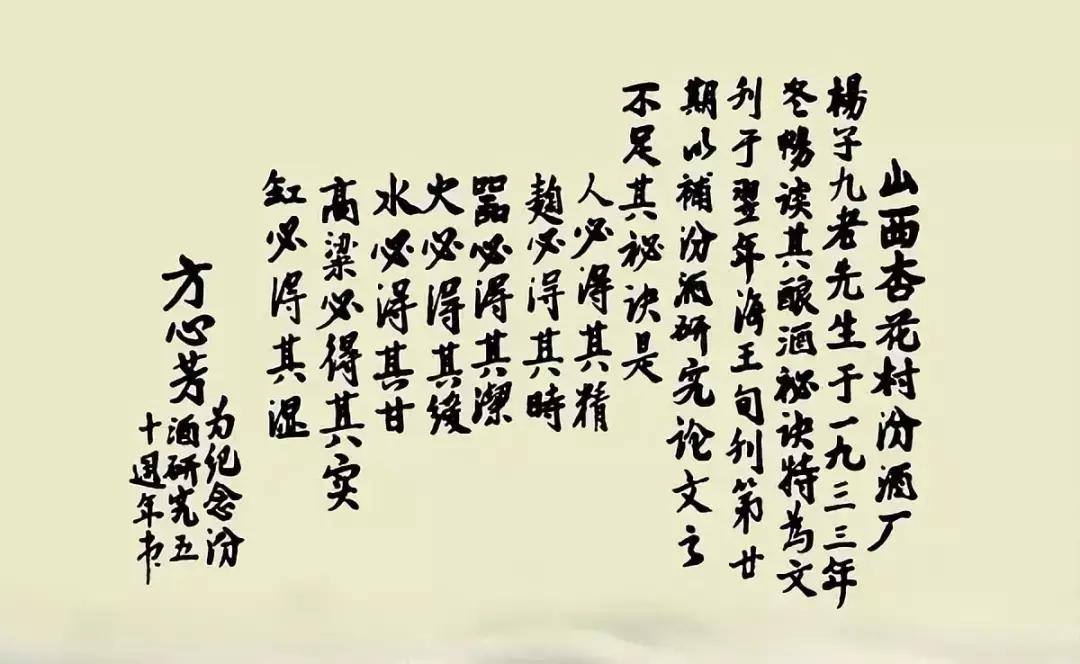 山西杏花村汾酒厂
楊子九老先生于一九三三年
冬暢谈其酿酒祕诀特為文
刋于翌年海王旬刋第廿
期以補汾酒研究论文之
不足其祕诀是
人必得其精
麹必得其時
器必得其潔
火必得其缓
水必得其甘
高粱必得其实
缸必得其湿
方心芳
为纪念汾
酒研究五
十週年书